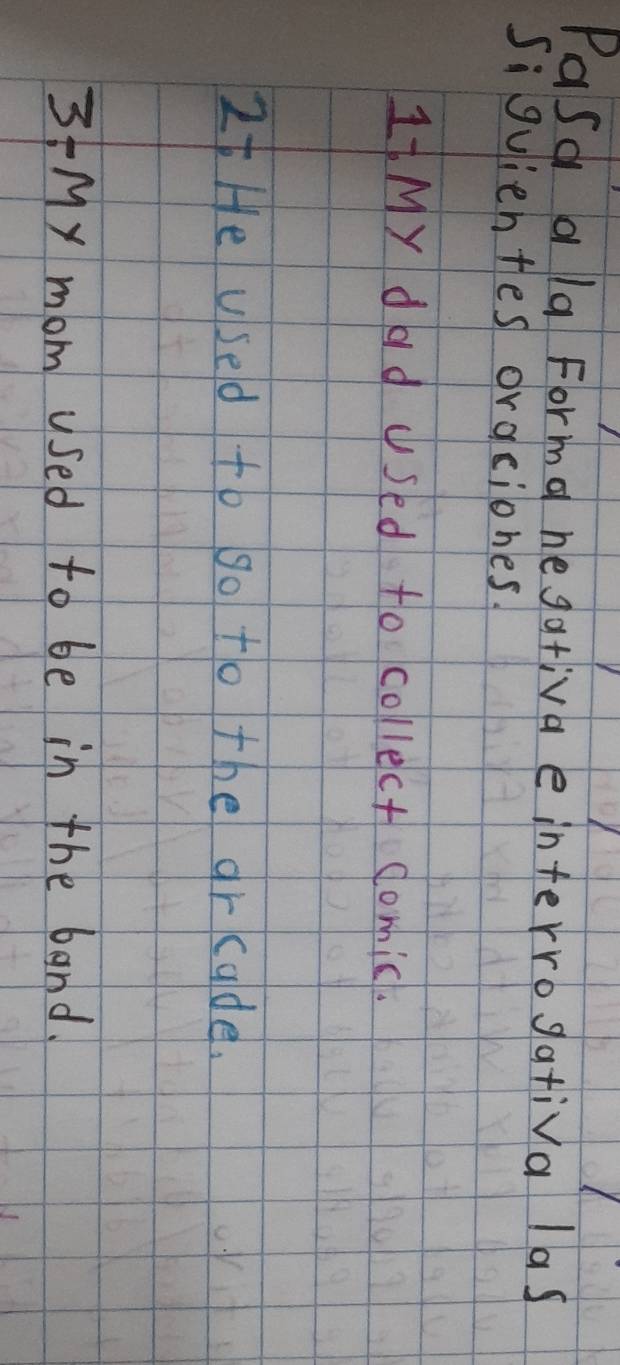 Pasa a la Forma negativa e interrogativa las
siguientes oraciones.
1:- My dad used to collect comic.
2:- He used to go to the arcade.
3:- My mom used to be in the band.